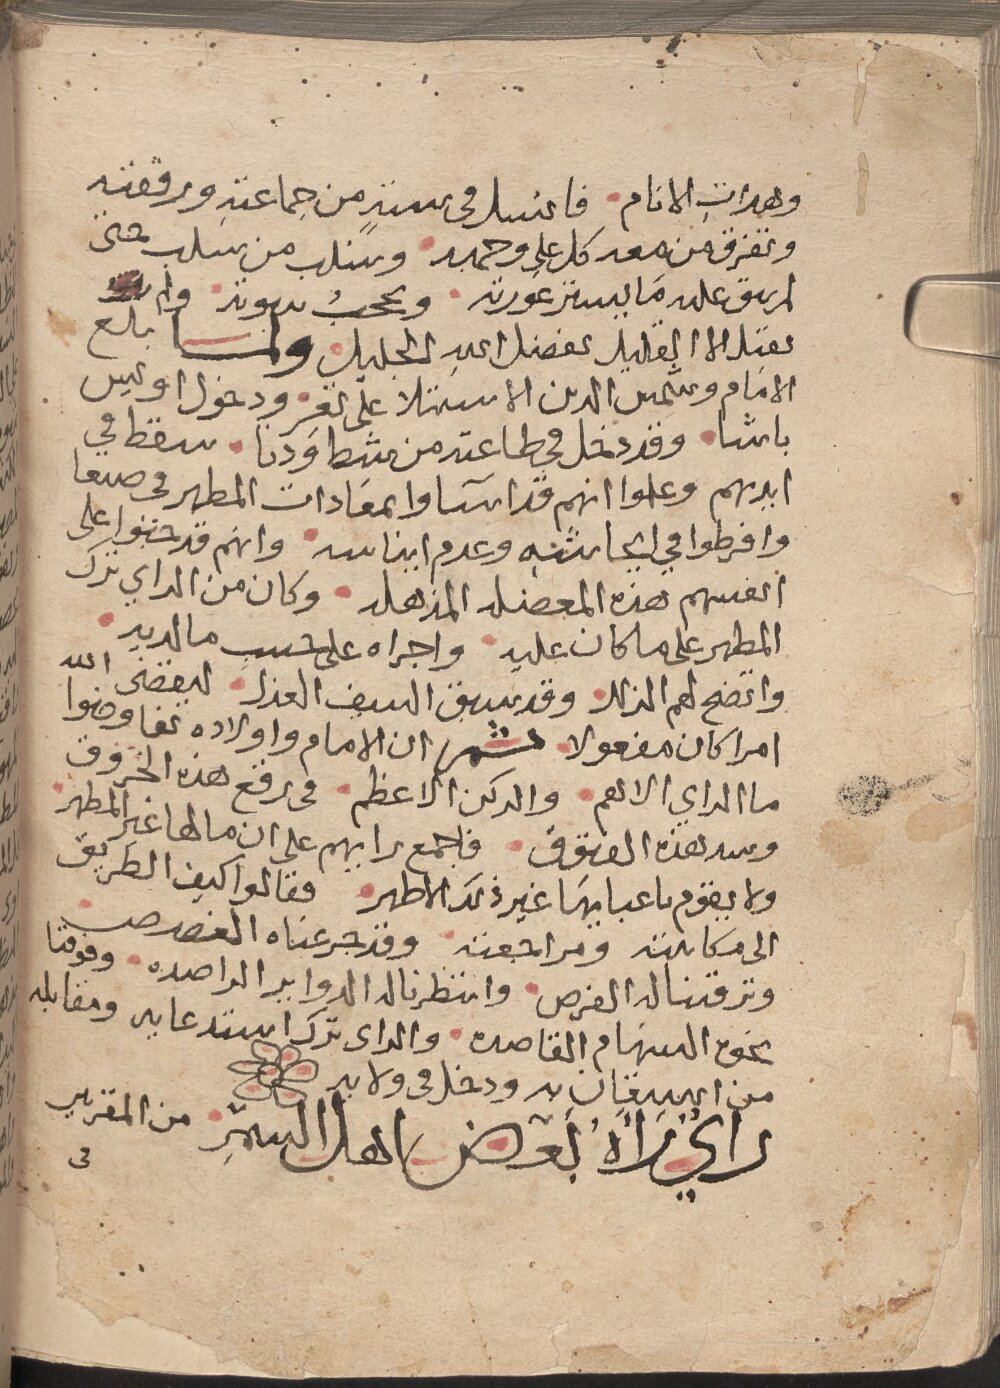 وهداة الانام فانسل في ستة من جماعته ورفقته
وتفرق من معه كل على وجهه وسلب من سلب حتى
لم يبق عليه ما يستر عورته ويحجب سوءته ولم
يقتل الا القليل بفضل الله الجليل ولما بلغ
الامام وشمس الدين الاستيلا على تعز ودخول اويس
باشا وقد دخل في طاعته من شط ودنا سقط في
ايديهم وعلموا انهم قد اساوا بمعادات المطهر في صنعا
وافرطوا في ايحاشه وعدم ايناسه وانهم قد جنوا على
انفسهم هذه المعضله المذهله وكان من الراي ترك
المطهر على ما كان عليه واجراه على حسب ما لديه
واتضح لهم الزلل وقد سبق السيف العذل ليقضى الله
امرا كان مفعولا ثم ان الامام واولاده تفاوضوا
ما الراي الاهم والركن الاعظم في رقع هذه الخروق
وسد هذه الفتوق فاجمع رايهم على ان ما لها غير المطهر
ولا يقوم باعبايها غير ذلك الاطهر فقالوا كيف الطريق
الى مكاتبته ومراجعته وقد جرعناه الغصص
وترقبنا له الفرص وانتظرنا له الدواير الراصده وفوقنا
نحوه السهام القاصده والراى ترك استدعايه ومقابلة
من استعان به ودخل في ولايه
راي رآه بعض اهل اليمن من المقربين
في